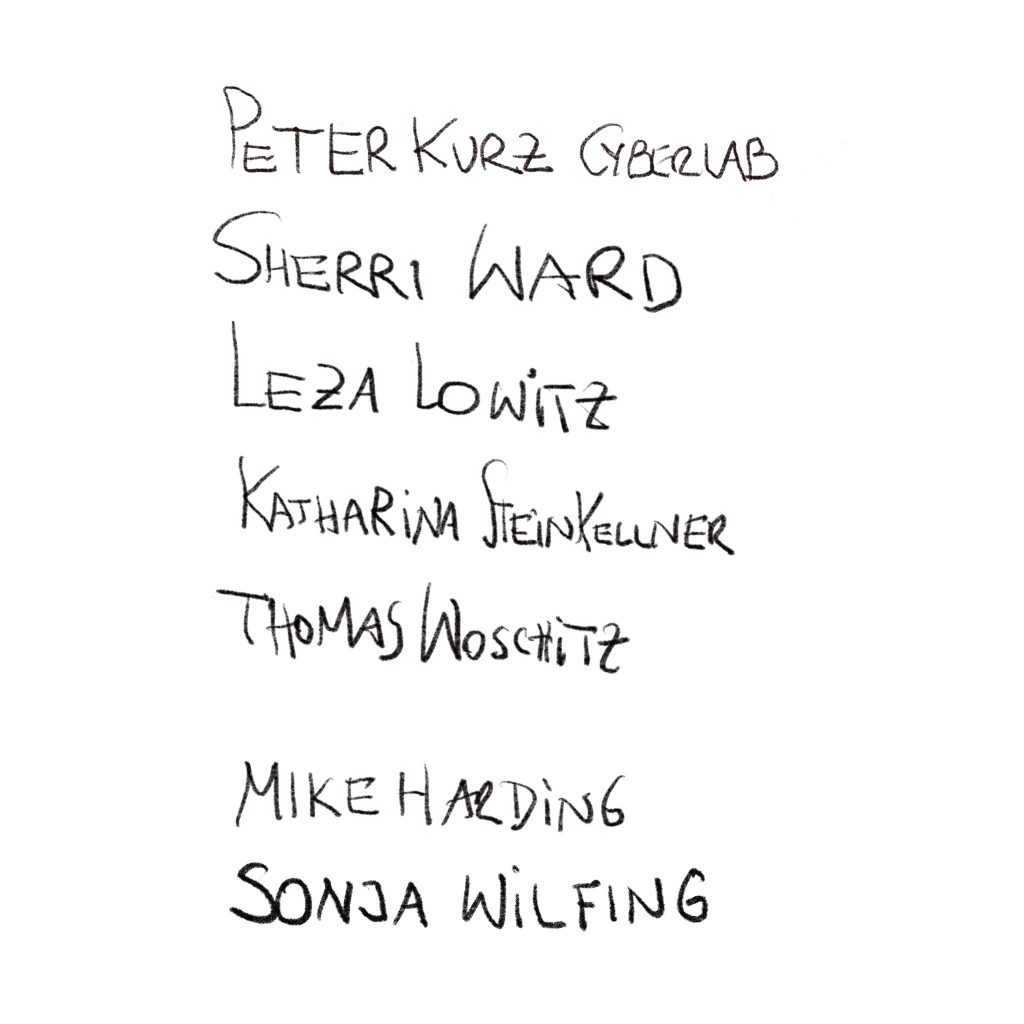 PETER KURZ CYBERLAB
SHERRI WARD
LEZA LOWiTZ
KATHARiNA STEiNKELLNER
THOMAS WOSCHiTZ
MIKE HARDiNG
SONJA WiLFING